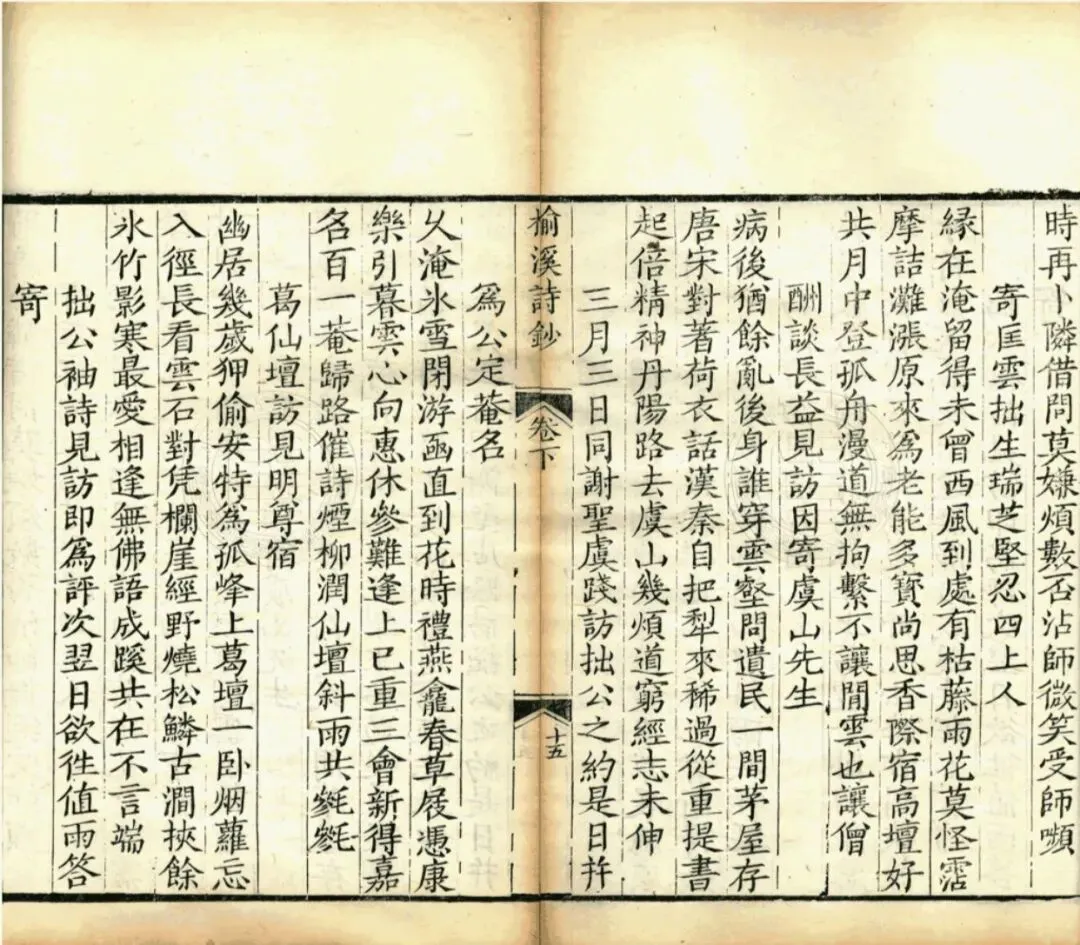 時再卜隣借問莫嫌煩數否沾師微笑受師嚬
寄匡雲拙生瑞芝堅忍四上人
縁在淹留得未曾西風到處有枯藤雨花莫怪霑
摩詰灘漲原來爲老能多寶尚思香際宿高壇好
共月中登孤舟漫道無拘繫不讓閒雲也讓僧
酬談長益見訪因寄虞山先生
病後猶餘亂後身誰穿雲壑問遺民一間茅屋存
唐宋對著荷衣話漢秦自把犁來稀過從重提書
起倍精神丹陽路去虞山幾煩道窮經志未伸
三月三日同謝聖虞踐訪拙公之約是日幷
榆溪詩鈔 卷下 十五
爲公定菴名
乆淹氷雪閉游凾直到花時禮燕龕春草屐憑康
樂引暮雲心向惠休參難逢上巳重三會新得嘉
名百一菴歸路催詩煙柳潤仙壇斜雨共毿毿
葛仙壇訪見明尊宿
幽居幾歲狎偷安特爲孤峰上葛壇一卧烟蘿忘
入徑長看雲石對凭欄崖經野燒松鱗古澗挾餘
氷竹影寒最愛相逢無佛語成蹊共在不言端
拙公袖詩見訪即爲評次翌日欲徃值雨答
寄